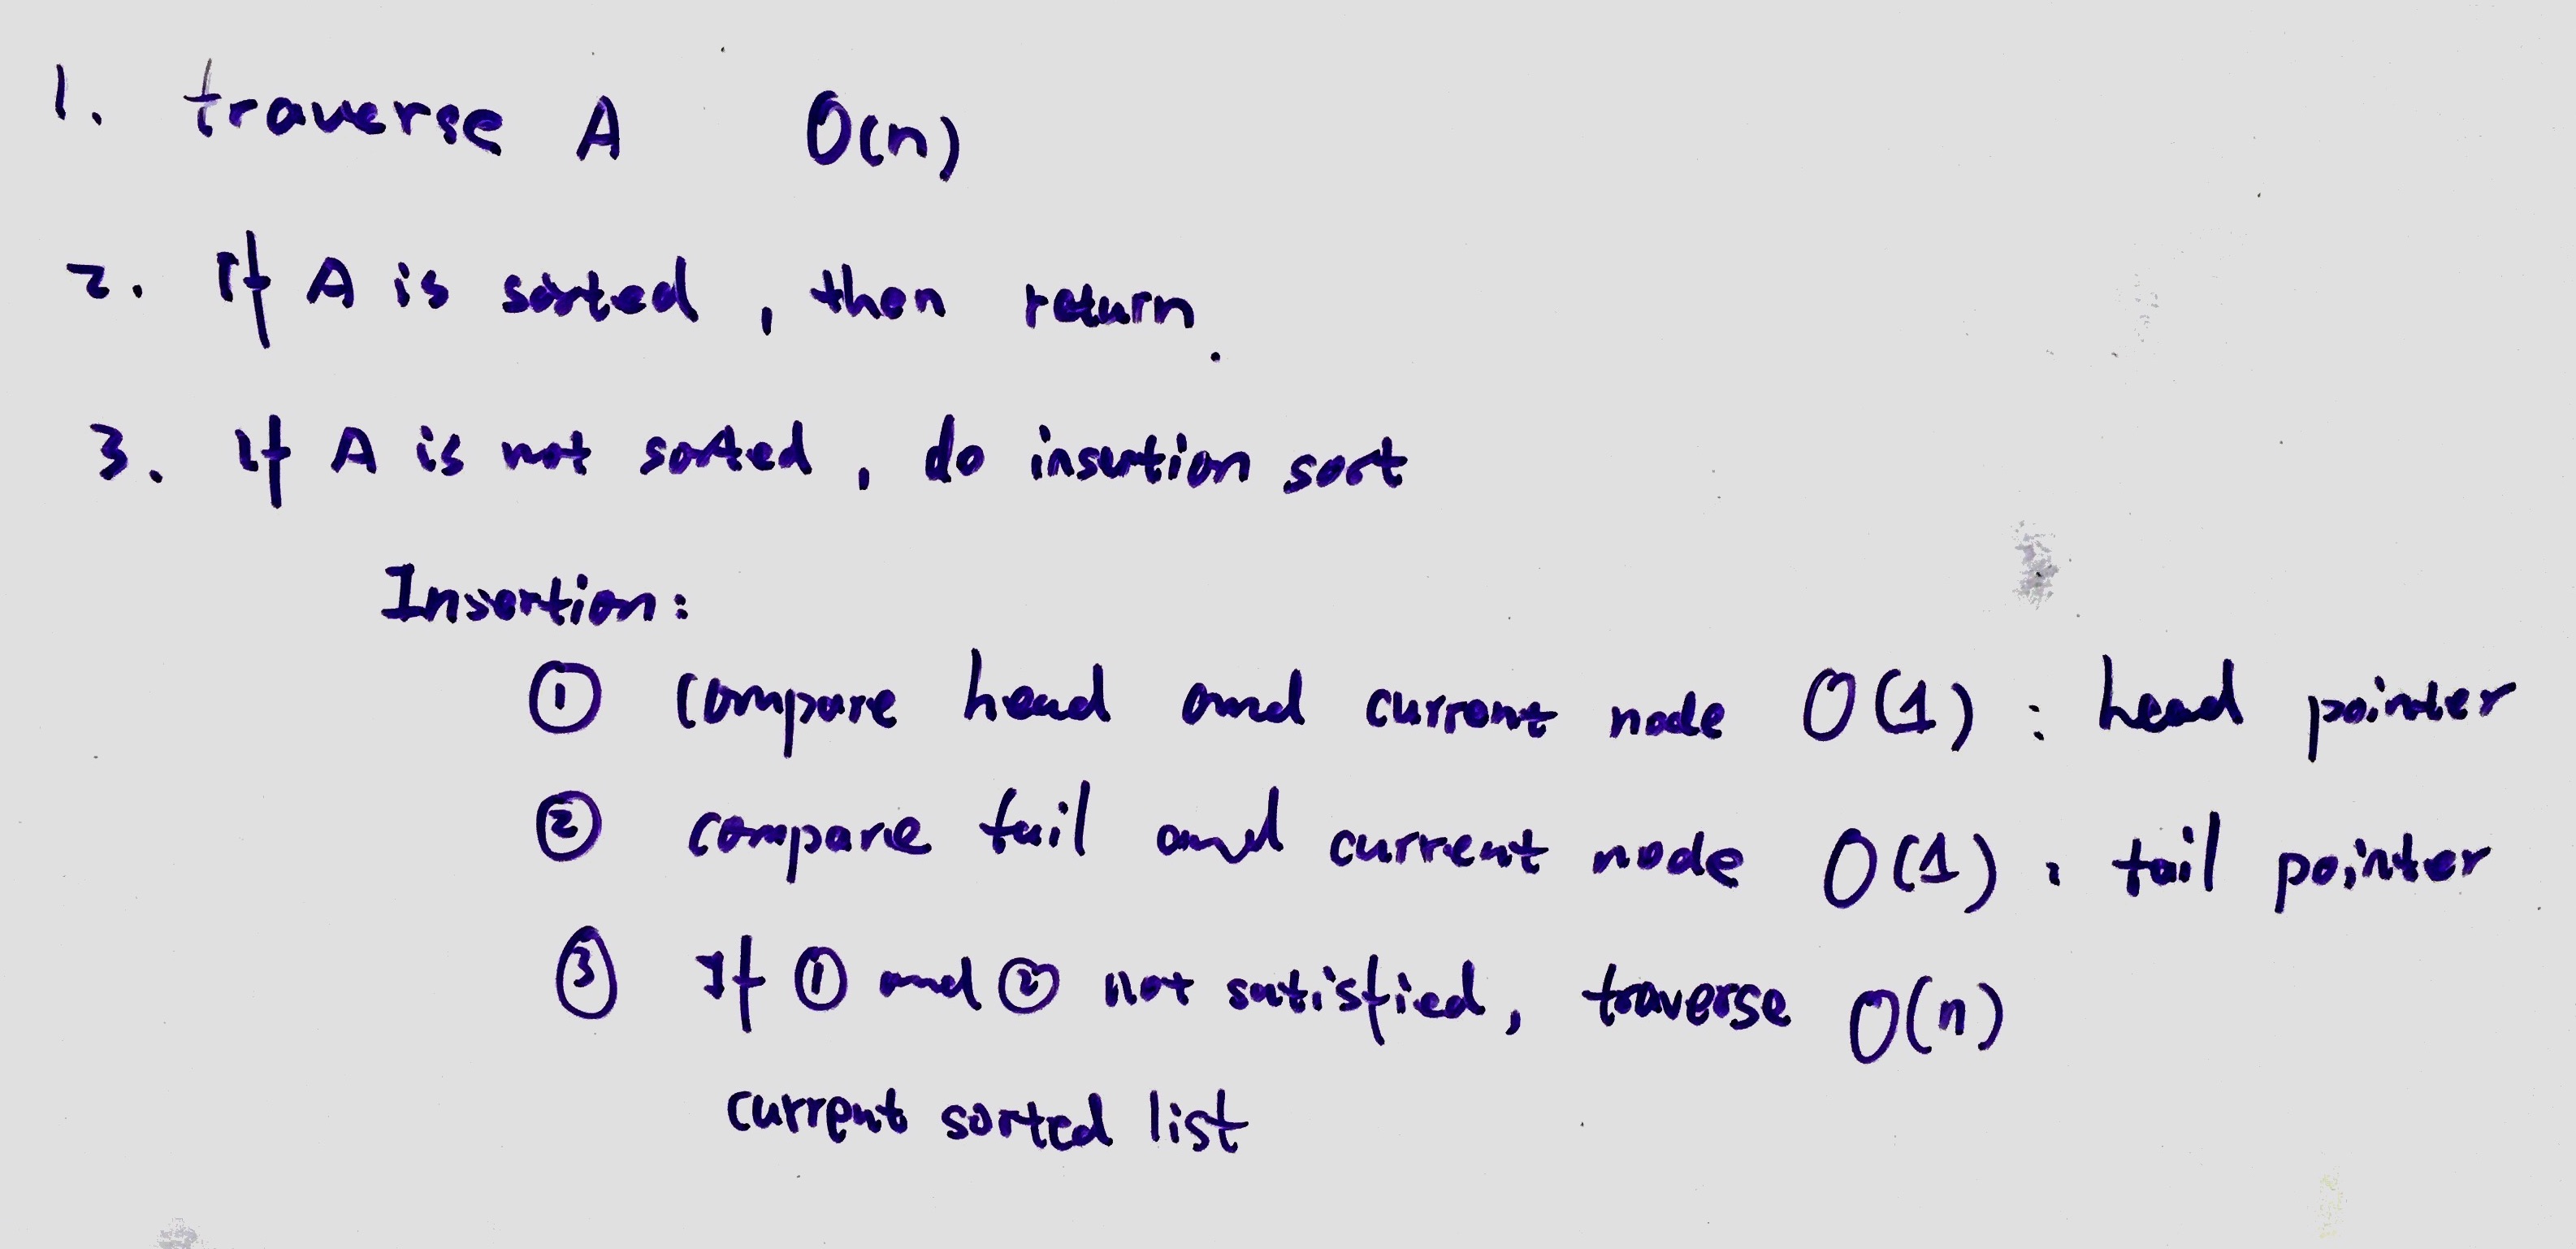 1. traverse A O(n)
2. If A is sorted, then return.
3. If A is not sorted, do insertion sort
Insertion:
① compare head and current node O(1) : head pointer
② compare tail and current node O(1) : tail pointer
③ If ① and ② not satisfied, traverse O(n)
current sorted list